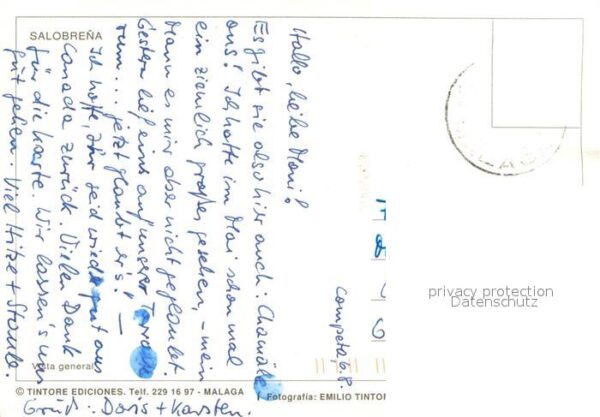 SALOBREÑA
Competa, 6.8.
Hallo, liebe Mani!
Es gibt sie also hier auch: Chamäle
ons! Ich hatte im Mai schon mal
ein ziemlich großes gesehen, - mein
Mann es mir aber nicht geglaubt.
Gestern lief eins auf unserer Terrasse
rum... jetzt glaubt er's! —
Ich hoffe, Ihr seid wieder gut aus
Canada zurück. Vielen Dank
für die Karte. Wir lassen's uns
gut gehen. Viel Hitze + Staub.
Gruß: Doris + Karsten.
Vista general
© TINTORE EDICIONES. Telf. 229 16 97 - MALAGA
Fotografía: EMILIO TINTOR
privacy protection
Datenschutz